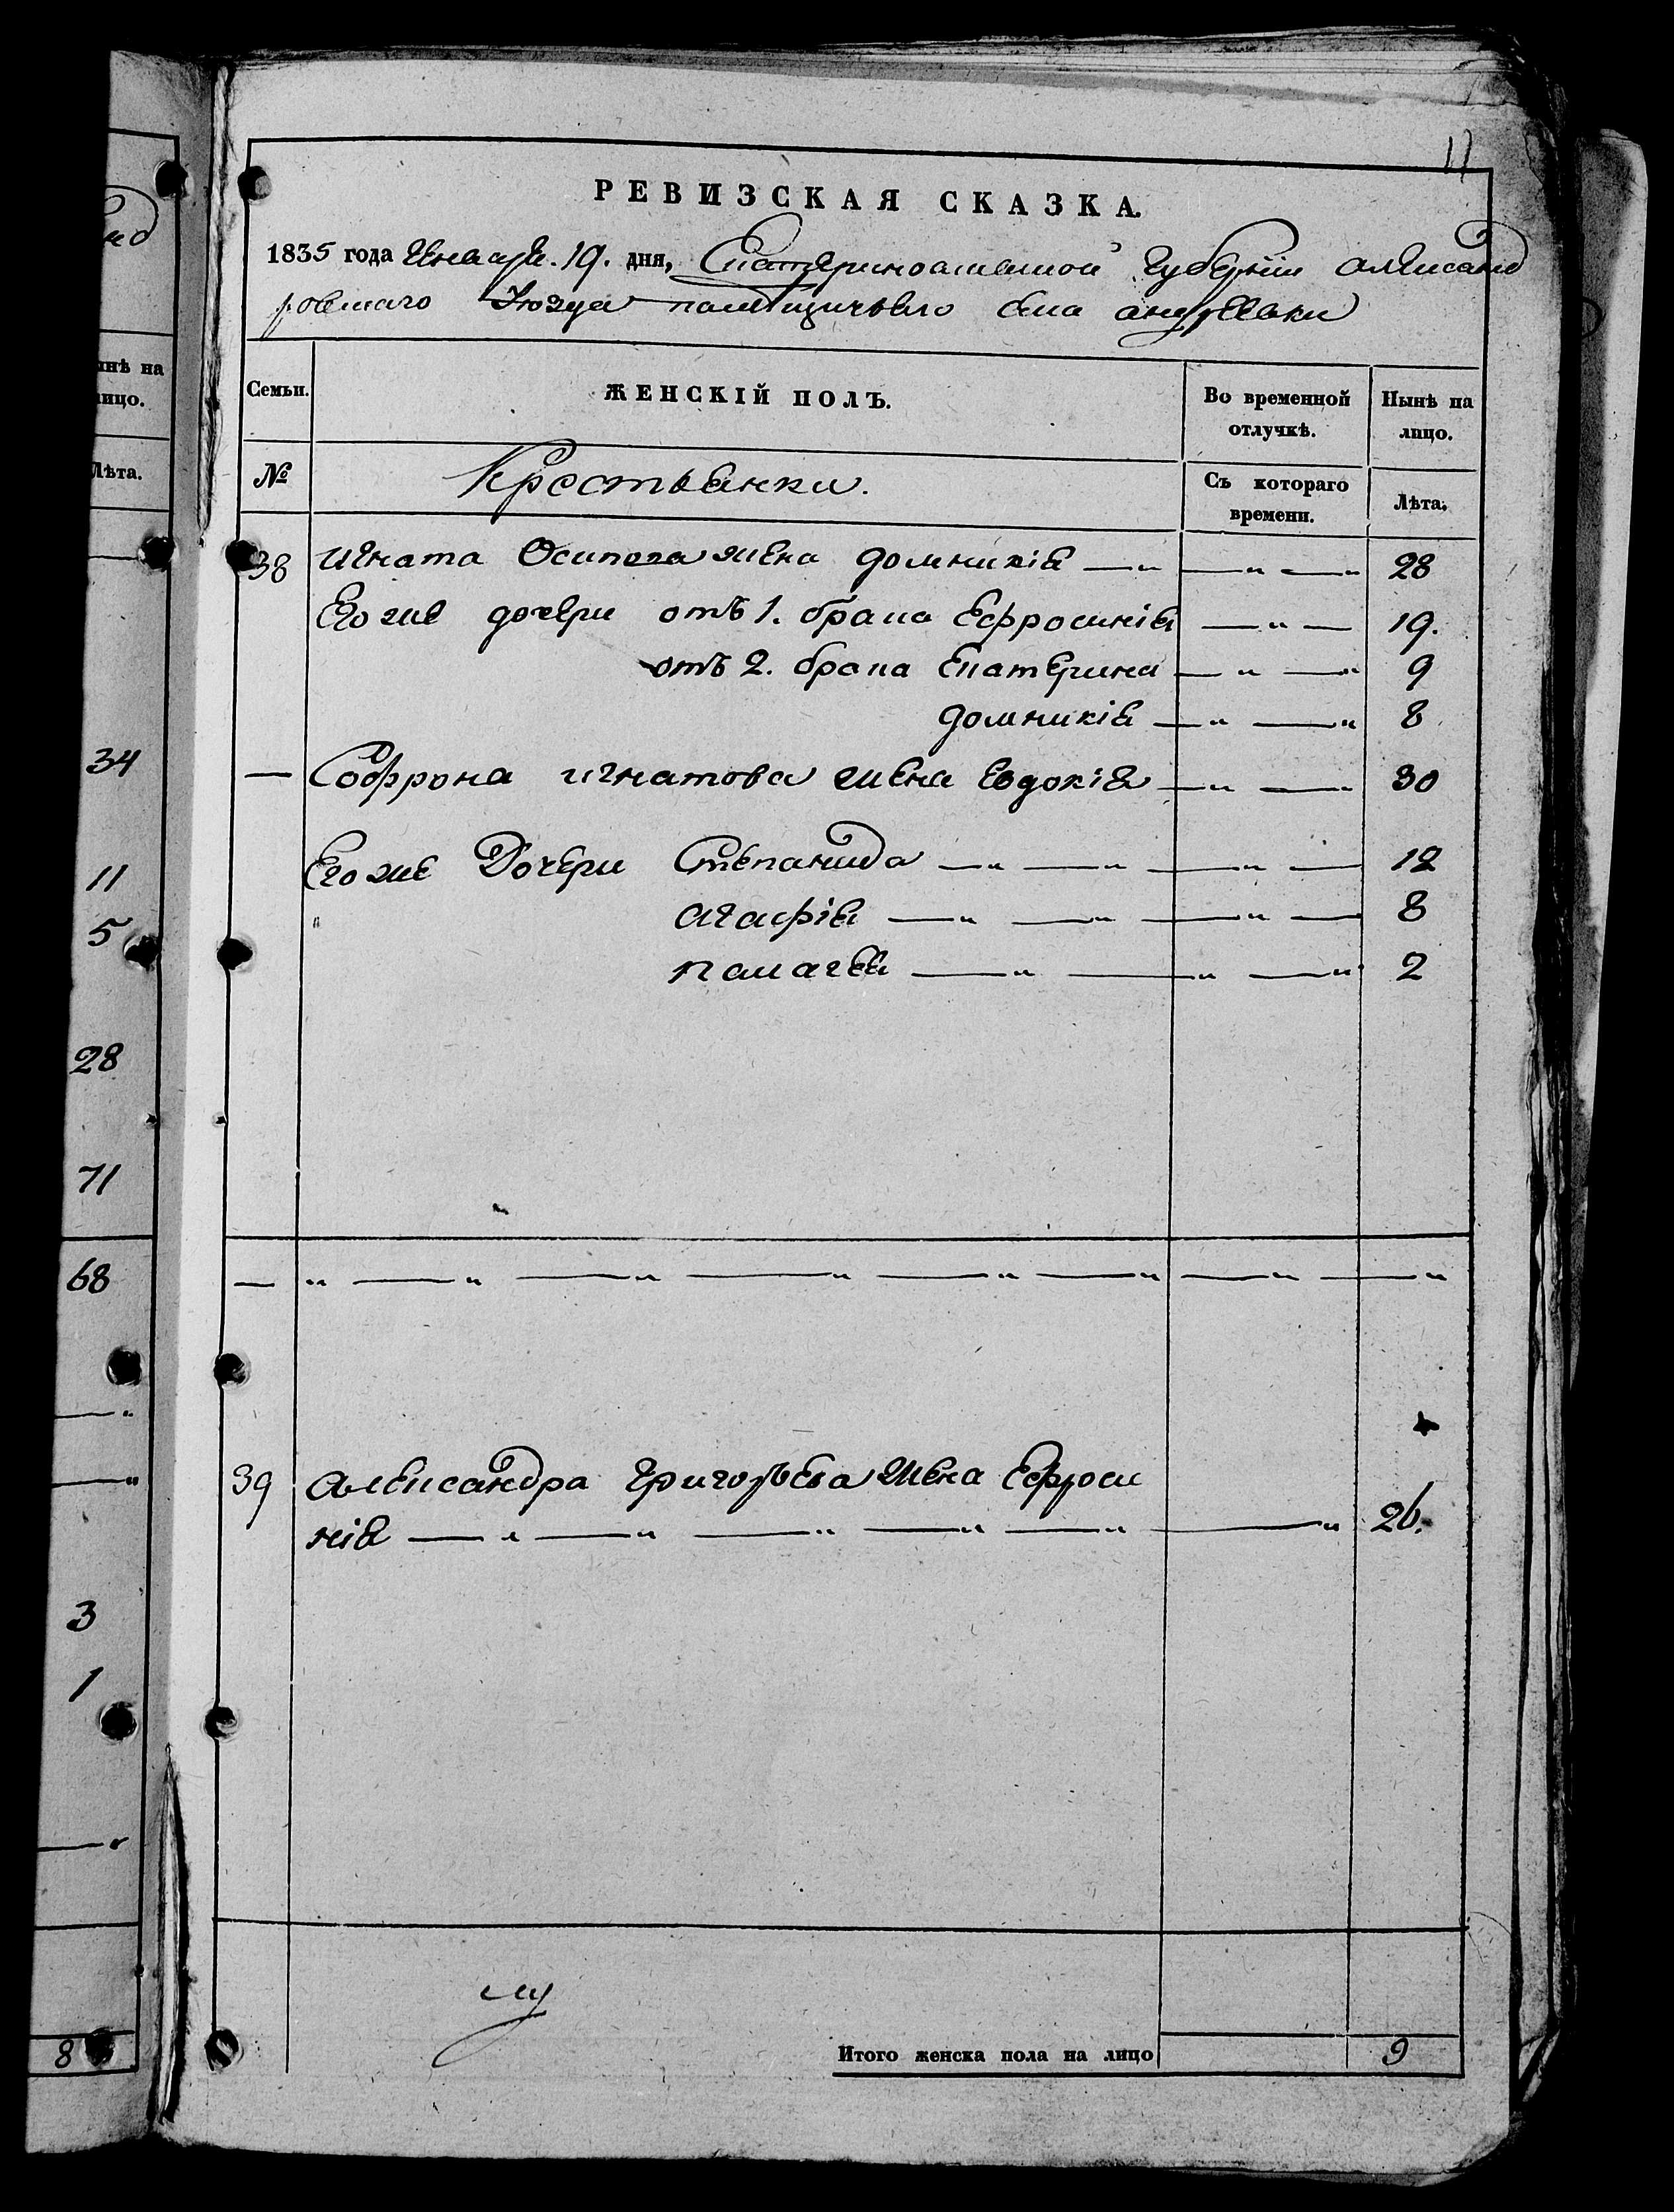 11
РЕВИЗСКАЯ СКАЗКА.
1835 года Генваря. 19. дня, Екатеринославской Губерніи Александ
ровскаго Уезда помещичьяго села андреевки
Семьи.
ЖЕНСКІЙ ПОЛЪ.
Во временной отлучкѣ.
Нынѣ на лицо.
№
Крестьянки.
Съ котораго времени.
Лѣта.
38 Игната Осипова жена домникія — „ — „ — „ 28
Его же дочери отъ 1. брака Ефросинія — „ — 19.
отъ 2. брака Екатерина — „ — „ 9
домникія — „ — „ 8
— Софрона игнатова жена Евдокія — „ — „ 30
Его же Дочери Степанида — „ — „ — „ — 12
„ агафія — „ — „ — „ — 8
пелагея — „ — „ — „ 2
— „ — „ — „ — „ — „ — „ — „ — „
39 Александра Григорьева жена Ефроси
нія — „ — „ — „ — „ — „ — „ 26.
Итого женска пола на лицо 9
нѣ на
лицо.
Лѣта.
34
11
5
28
71
68
3
1
8